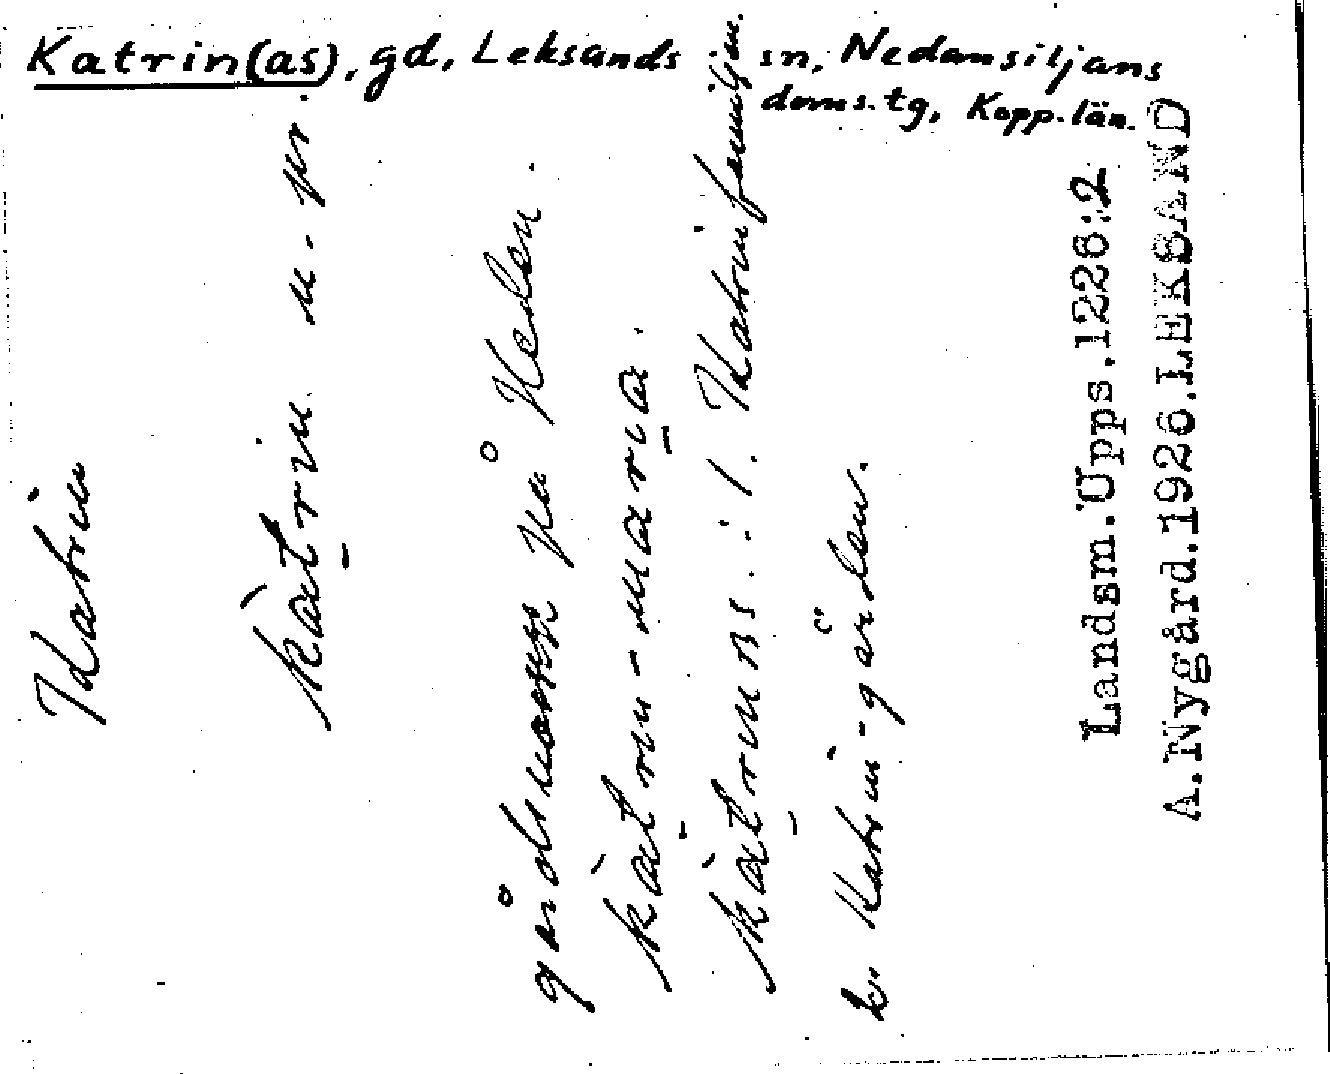 Katrin(as), gd, Leksands sn, Nedansiljans
doms.tg, Kopp.län.
Katrin
kàtrin n. pr.
gårdsnamn på Heden.
kàtrin-maria.
kàtrins. : 1. Katrinfamiljen.
b. Katrin-gården.
Landsm.Upps.1226:2
A.Nygård.1926.LEKSAND